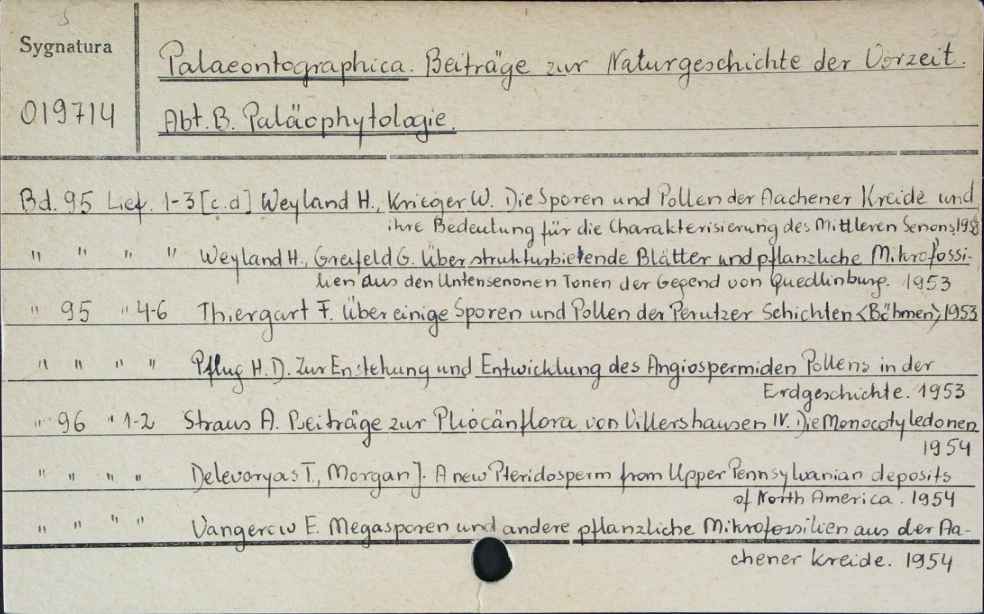 5
Sygnatura
019714
Palaeontographica. Beiträge zur Naturgeschichte der Vorzeit.
Abt. B. Paläophytologie.
Bd. 95 Lief. 1-3 [c.d] Weyland H., Krieger W. Die Sporen und Pollen der Aachener Kreide und
ihre Bedeutung für die Charakterisierung des Mittleren Senons, 1953
" " " " Weyland H., Greifeld G. Über strukturbietende Blätter und pflanzliche Mikrofossi-
lien aus den Untensenonen Tonen der Gegend von Quedlinburg. 1953
" 95 " 4-6 Thiergart F. Über einige Sporen und Pollen der Perutzer Schichten <Böhmen>, 1953
" " " " Pflug H. D. Zur Enstehung und Entwicklung des Angiospermiden Pollens in der
Erdgeschichte. 1953
" 96 " 1-2 Straus A. Beiträge zur Pliocänflora von Villershausen IV. Die Monocotyledonen
1954
" " " " Delevoryas T., Morgan J. A new Pteridosperm from Upper Pennsylvanian deposits
of North America. 1954
" " " " Vangerow E. Megasporen und andere pflanzliche Mikrofossilien aus der Aa-
chener Kreide. 1954